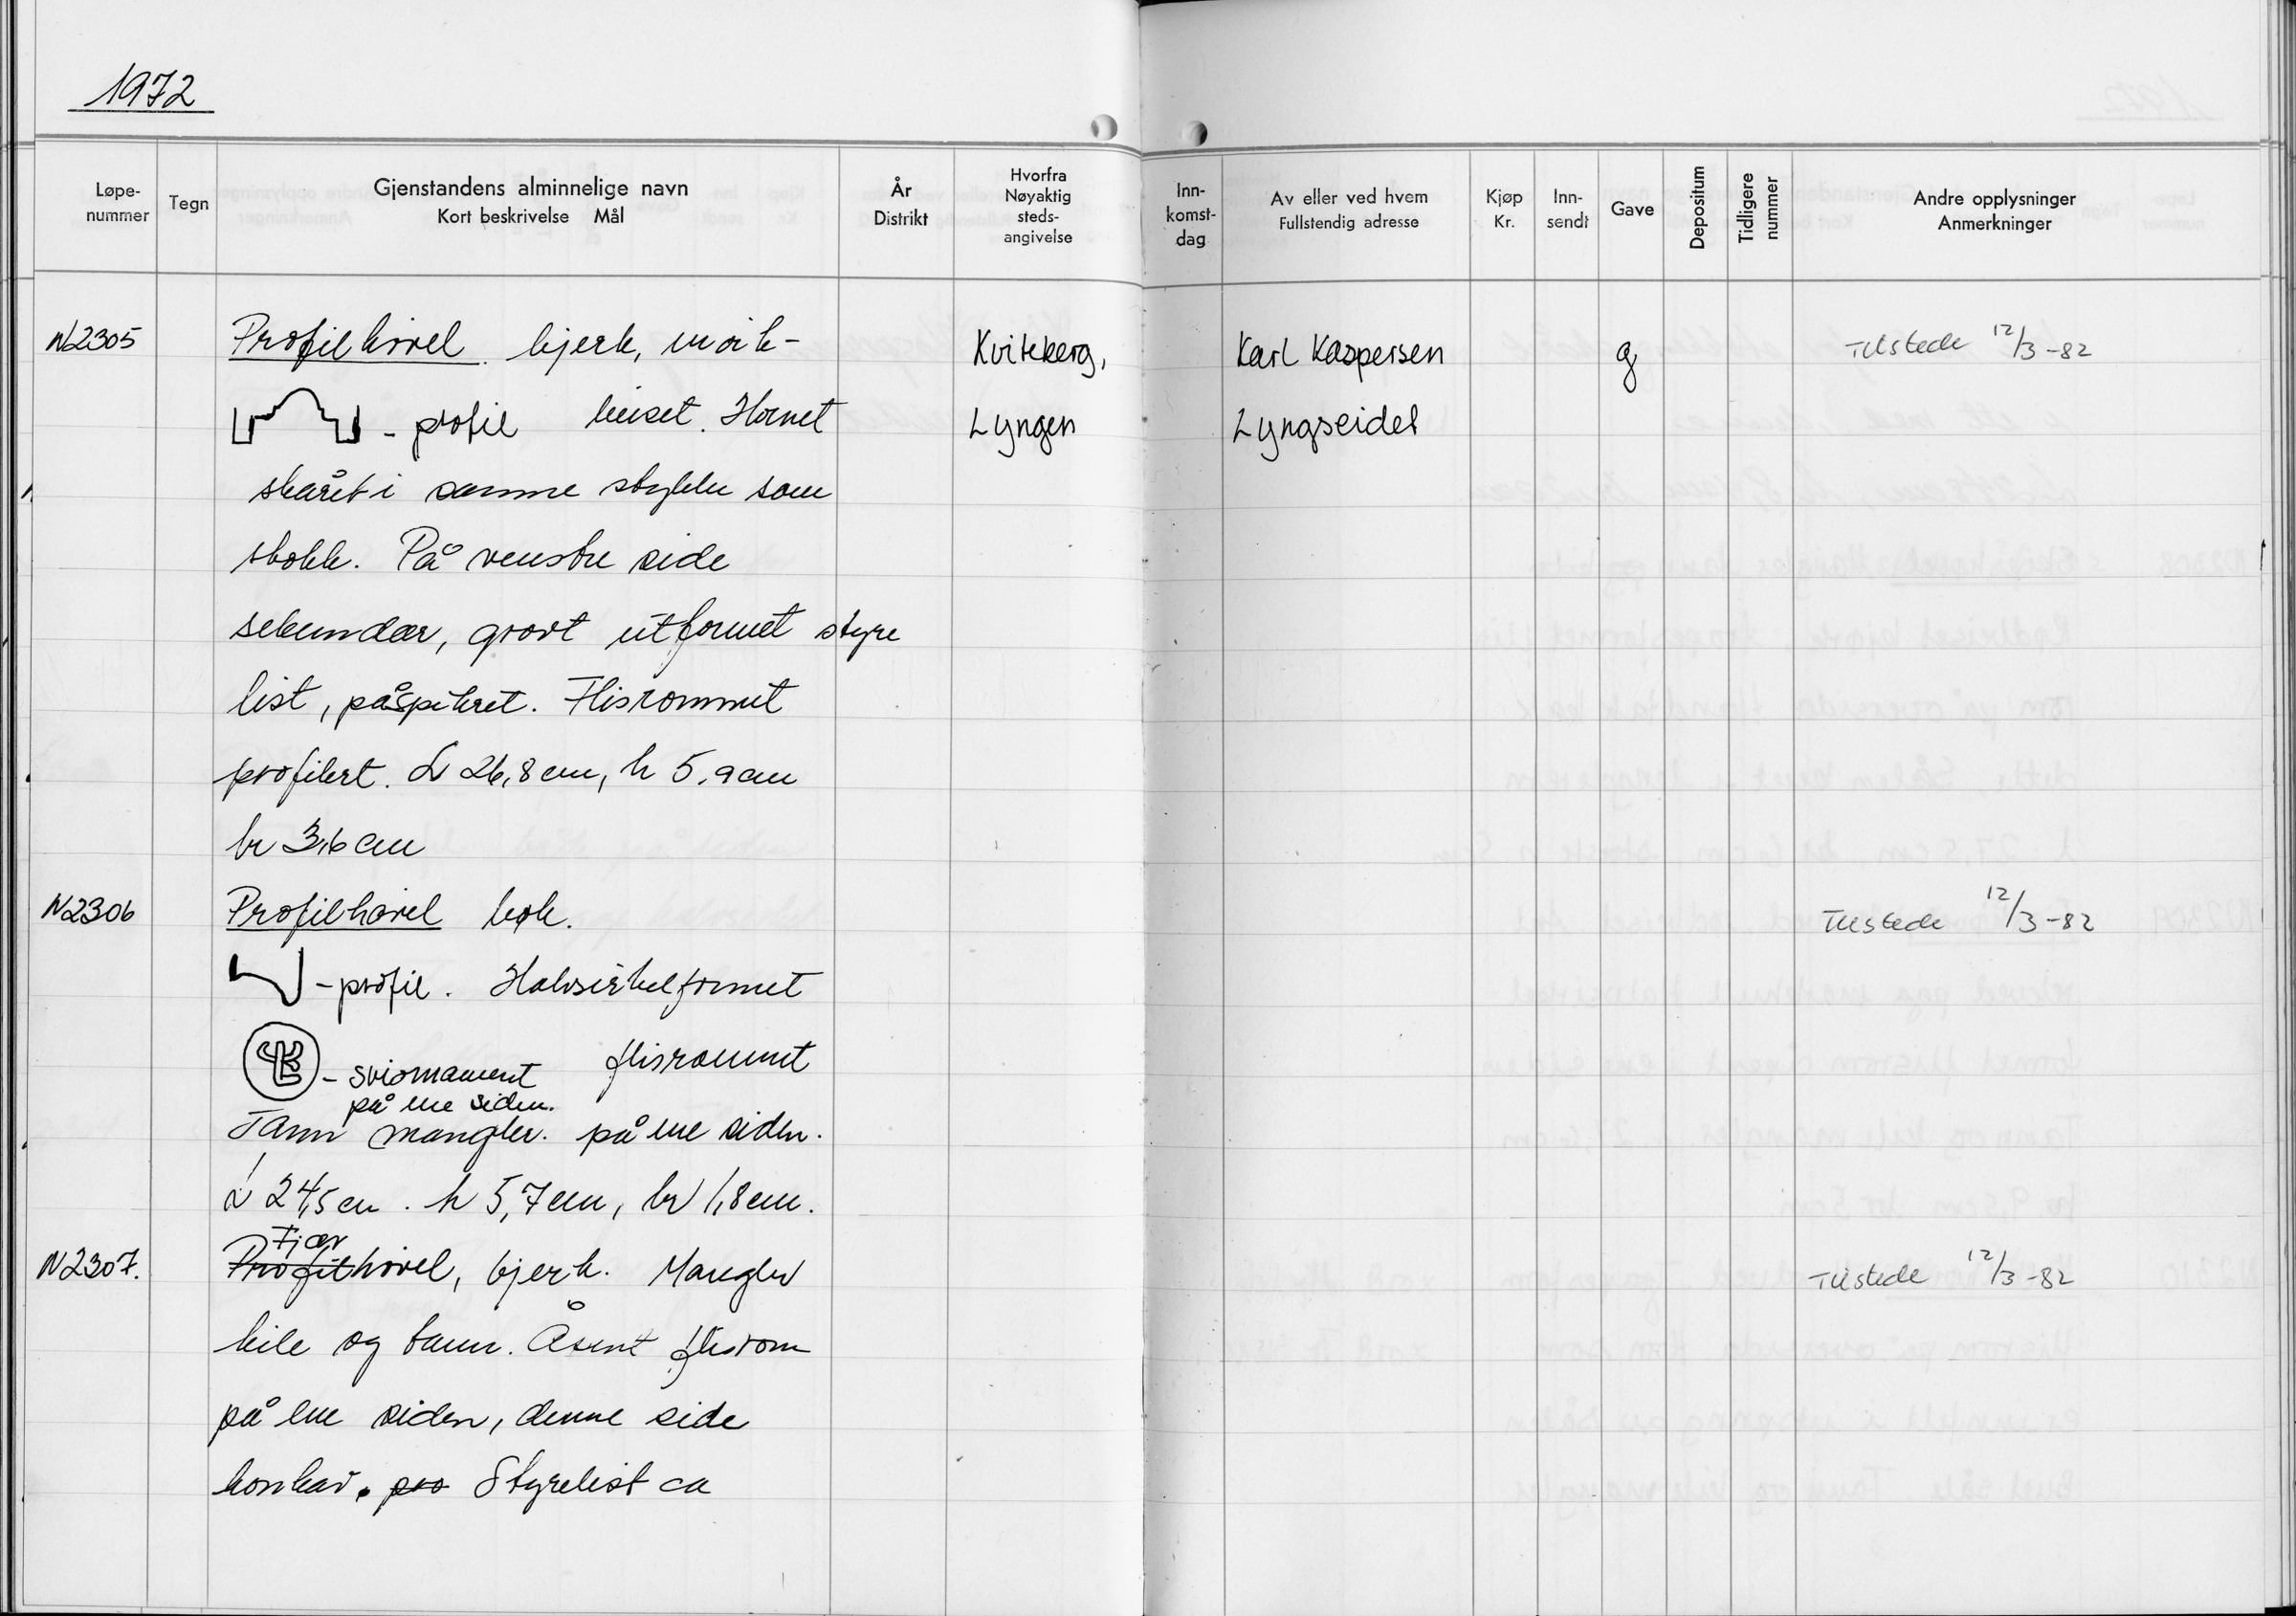 1972
Løpe-
nummer
Tegn
Gjenstandens alminnelige navn
Kort beskrivelse Mål
År
Distrikt
Hvorfra
Nøyaktig
steds-
angivelse
Inn-
komst-
dag
Av eller ved hvem
Fullstendig adresse
Kjøp
Kr.
Inn-
sendt
Gave
Depositum
Tidligere
nummer
Andre opplysninger
Anmerkninger
N2305 Profilhøvel. bjerk, mørk- Kviteberg, Karl Kaspersen g Tilstede 12/3-82
- profil beiset. Hornet Lyngen Lyngseidet
skåret i samme stykke som
stokk. På venstre side
sekundær, grovt utformet styre
list, påspikret. Flisrommet
profilert. L 26,8 cm, h 5,9 cm
br 3,6 cm
N2306 Profilhøvel bøk. Tilstede 12/3-82
- profil. Halvsirkelformet
- sviornament flisrommet
på ene siden.
Tann mangler. på ene siden.
L 24,5 cm. h 5,7 cm, br 1,8 cm.
Fjær
N2307. Profilhøvel, bjerk. Mangler Tilstede 12/3-82
kile og tann. Åpent flisrom
på ene siden, denne side
konkav. pro Styrelist ca